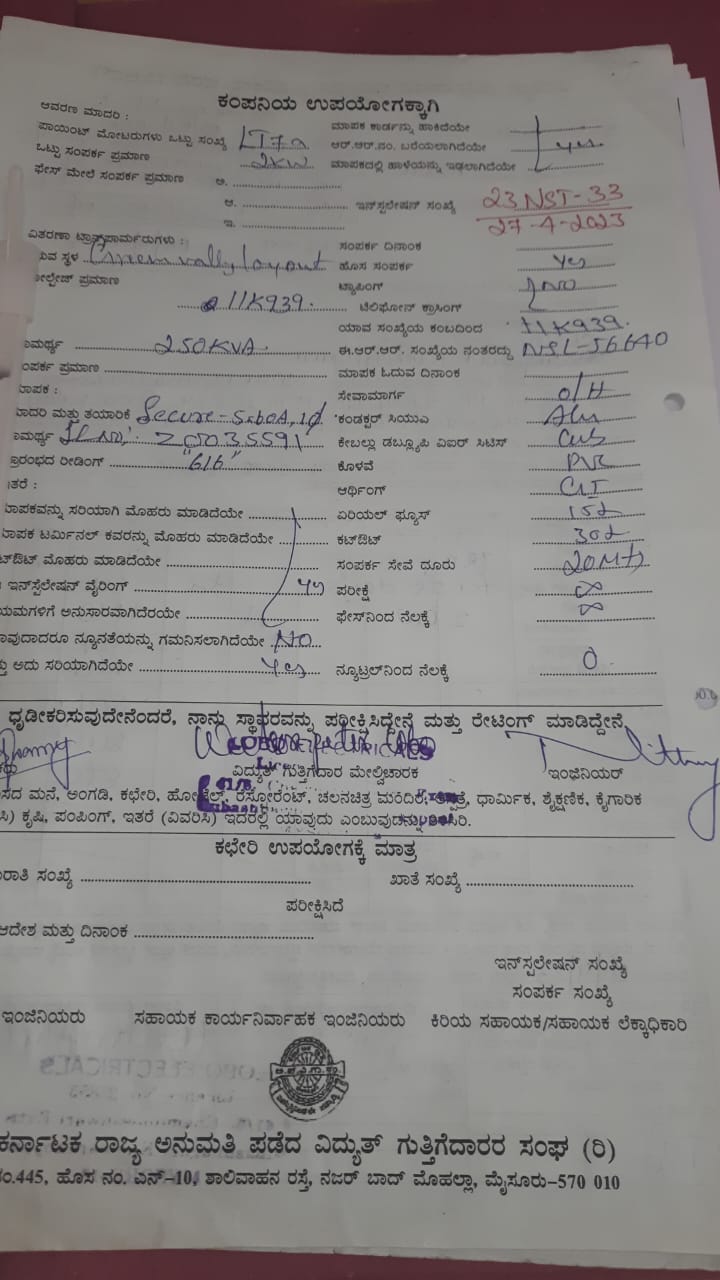 ಕಂಪನಿಯ ಉಪಯೋಗಕ್ಕಾಗಿ
ಆವರಣ ಮಾದರಿ :
ಮಾಪಕ ಕಾರ್ಡನ್ನು ಹಾಕಿದೆಯೇ
ಪಾಯಿಂಟ್ ಮೋಟರುಗಳು ಒಟ್ಟು ಸಂಖ್ಯೆ LT7a ಆರ್.ಆರ್.ನಂ. ಬರೆಯಲಾಗಿದೆಯೇ yes
ಒಟ್ಟು ಸಂಪರ್ಕ ಪ್ರಮಾಣ 2KW ಮಾಪಕದಲ್ಲಿ ಹಾಳೆಯನ್ನು ಇಡಲಾಗಿದೆಯೇ
ಫೇಸ್ ಮೇಲೆ ಸಂಪರ್ಕ ಪ್ರಮಾಣ ಅ.
ಆ. ಇನ್‌ಸ್ಟಲೇಷನ್ ಸಂಖ್ಯೆ 23 NST-33
ಇ. 27-4-2023
ವಿತರಣಾ ಟ್ರಾನ್ಸ್‌ಫಾರ್ಮರುಗಳು : ಸಂಪರ್ಕ ದಿನಾಂಕ
ರುವ ಸ್ಥಳ layout ಹೊಸ ಸಂಪರ್ಕ Yes
ವೋಲ್ಟೇಜ್ ಪ್ರಮಾಣ ಟ್ಯಾಪಿಂಗ್ NO
11K939. ಟೆಲಿಫೋನ್ ಕ್ರಾಸಿಂಗ್
ಯಾವ ಸಂಖ್ಯೆಯ ಕಂಬದಿಂದ 11K939.
ಾಮರ್ಥ್ಯ 250KVA. ಈ.ಆರ್.ಆರ್. ಸಂಖ್ಯೆಯ ನಂತರದ್ದು NSL-56640
ಂಪರ್ಕ ಪ್ರಮಾಣ ಮಾಪಕ ಓದುವ ದಿನಾಂಕ
ಾಪಕ : ಸೇವಾಮಾರ್ಗ O/H
ಾದರಿ ಮತ್ತು ತಯಾರಿಕೆ Secure ಕಂಡಕ್ಟರ್ ಸಿಯುಎ Alu
ಾಮರ್ಥ್ಯ SL NO: ಕೇಬಲ್ಲು ಡಬ್ಲ್ಯೂಪಿ ವಿಐರ್ ಸಿಟಿಸ್
್ರಾರಂಭದ ರೀಡಿಂಗ್ "616" ಕೊಳವೆ PVC
ತರೆ : ಆರ್ಥಿಂಗ್
ಾಪಕವನ್ನು ಸರಿಯಾಗಿ ಮೊಹರು ಮಾಡಿದೆಯೇ ಏರಿಯಲ್ ಫ್ಯೂಸ್
ಾಪಕ ಟರ್ಮಿನಲ್ ಕವರನ್ನು ಮೊಹರು ಮಾಡಿದೆಯೇ ಕಟ್‌ಔಟ್
ಟ್‌ಔಟ್ ಮೊಹರು ಮಾಡಿದೆಯೇ ಸಂಪರ್ಕ ಸೇವೆ ದೂರು 20Mt
ಇನ್‌ಸ್ಟಲೇಷನ್ ವೈರಿಂಗ್ yes ಪರೀಕ್ಷೆ ∞
ಯಮಗಳಿಗೆ ಅನುಸಾರವಾಗಿದೆರಯೇ ಫೇಸ್‌ನಿಂದ ನೆಲಕ್ಕೆ ∞
ಾವುದಾದರೂ ನ್ಯೂನತೆಯನ್ನು ಗಮನಿಸಲಾಗಿದೆಯೇ NO
ತ್ತು ಅದು ಸರಿಯಾಗಿದೆಯೇ Yes ನ್ಯೂಟ್ರಲ್‌ನಿಂದ ನೆಲಕ್ಕೆ 0
ಧೃಡೀಕರಿಸುವುದೇನೆಂದರೆ, ನಾನು ಸ್ಥಾವರವನ್ನು ಪರೀಕ್ಷಿಸಿದ್ದೇನೆ ಮತ್ತು ರೇಟಿಂಗ್ ಮಾಡಿದ್ದೇನೆ.
ವಿದ್ಯುತ್ ಗುತ್ತಿಗೆದಾರ ಮೇಲ್ವಿಚಾರಕ ಇಂಜಿನಿಯರ್
ಸದ ಮನೆ, ಅಂಗಡಿ, ಕಛೇರಿ, ಹೋಟೆಲ್, ರೆಸ್ಟೋರೆಂಟ್, ಚಲನಚಿತ್ರ ಮಂದಿರ, ಆಸ್ಪತ್ರೆ, ಧಾರ್ಮಿಕ, ಶೈಕ್ಷಣಿಕ, ಕೈಗಾರಿಕ
ಸಿ) ಕೃಷಿ, ಪಂಪಿಂಗ್, ಇತರೆ (ವಿವರಿಸಿ) ಇದರಲ್ಲಿ ಯಾವುದು ಎಂಬುವುದನ್ನು ತಿಳಿಸಿರಿ.
ಕಛೇರಿ ಉಪಯೋಗಕ್ಕೆ ಮಾತ್ರ
ರಾತಿ ಸಂಖ್ಯೆ ಖಾತೆ ಸಂಖ್ಯೆ
ಪರೀಕ್ಷಿಸಿದೆ
ಆದೇಶ ಮತ್ತು ದಿನಾಂಕ
ಇನ್‌ಸ್ಟಲೇಷನ್ ಸಂಖ್ಯೆ
ಸಂಪರ್ಕ ಸಂಖ್ಯೆ
ಇಂಜಿನಿಯರು ಸಹಾಯಕ ಕಾರ್ಯನಿರ್ವಾಹಕ ಇಂಜಿನಿಯರು ಕಿರಿಯ ಸಹಾಯಕ/ಸಹಾಯಕ ಲೆಕ್ಕಾಧಿಕಾರಿ
ಕರ್ನಾಟಕ ರಾಜ್ಯ ಅನುಮತಿ ಪಡೆದ ವಿದ್ಯುತ್ ಗುತ್ತಿಗೆದಾರರ ಸಂಘ (ರಿ)
ನಂ.445, ಹೊಸ ನಂ. ಎನ್-10, ಶಾಲಿವಾಹನ ರಸ್ತೆ, ನಜರ್ ಬಾದ್ ಮೊಹಲ್ಲಾ, ಮೈಸೂರು-570 010